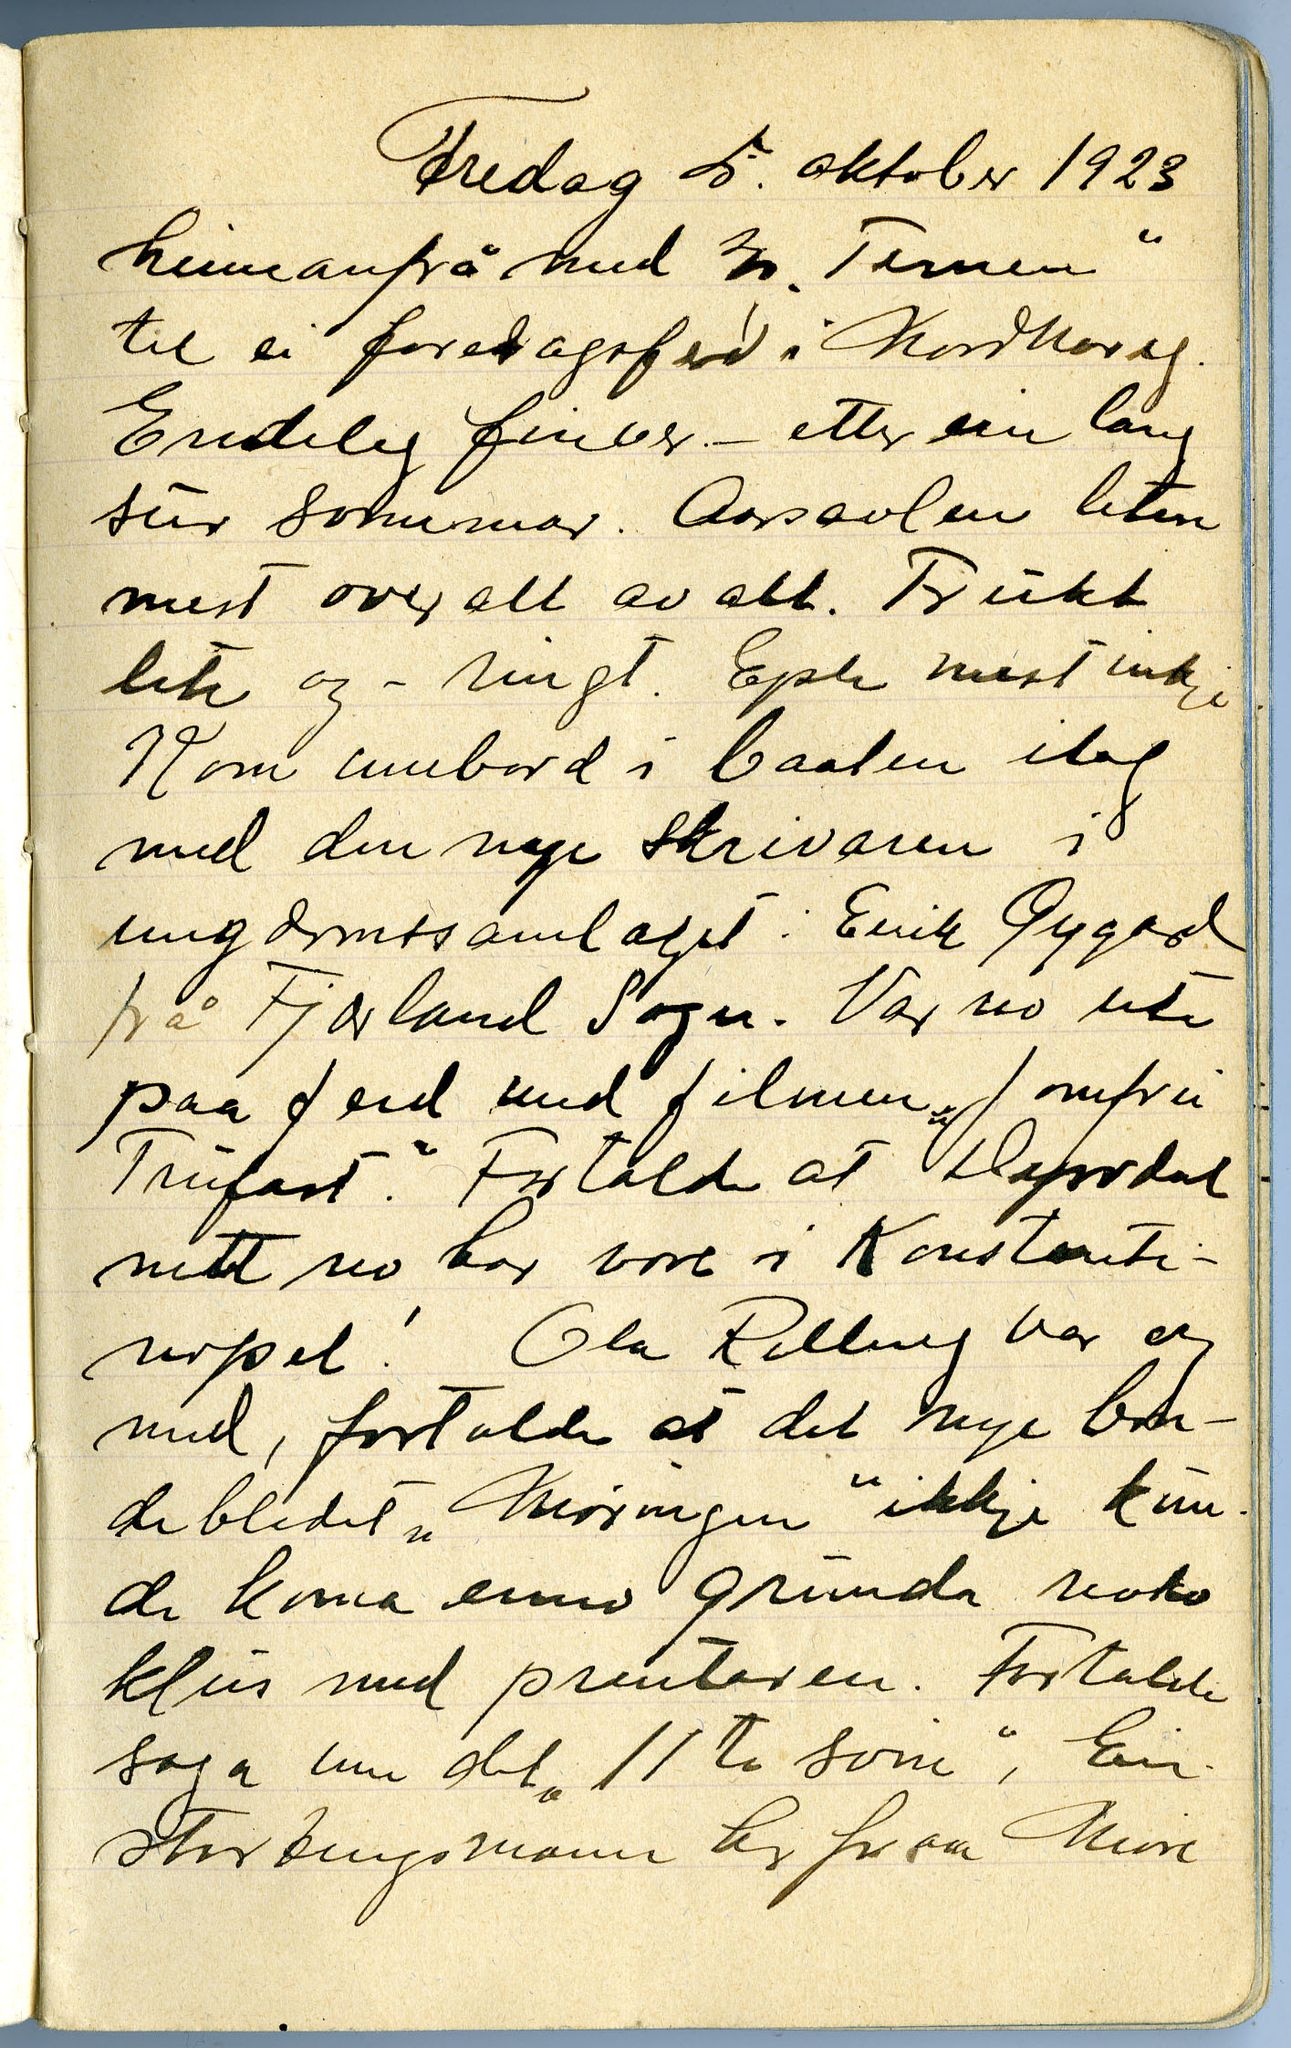 Fredag 5. oktober 1923
heimanfrå med "Ternen"
til ei foredragsferd i Nord Noreg.
Endeleg finver – etter ein lang
sur sommar. Aarsavlen liten
mest overalt av alt. Frukt
lite og – ringt. Eple mest inkje
Kom umbord i baaten idag
med den nye skrivaren i
ungdomssamlaget: Eirik Øygard
frå Fjærland Sogn. Var no ute
paa ferd med filmen "Jomfru
Trufast." Fortalde at
nett no har vore i Konstanti-
nopel! Ola Relling var og
med, fortalde at det nye bon-
debladet "Møringen" ikkje kun-
de koma enno grunda noko
klus med prentaren. Fortalde
soga um det "11te som", Ein
stortingsmann her fraa Møre